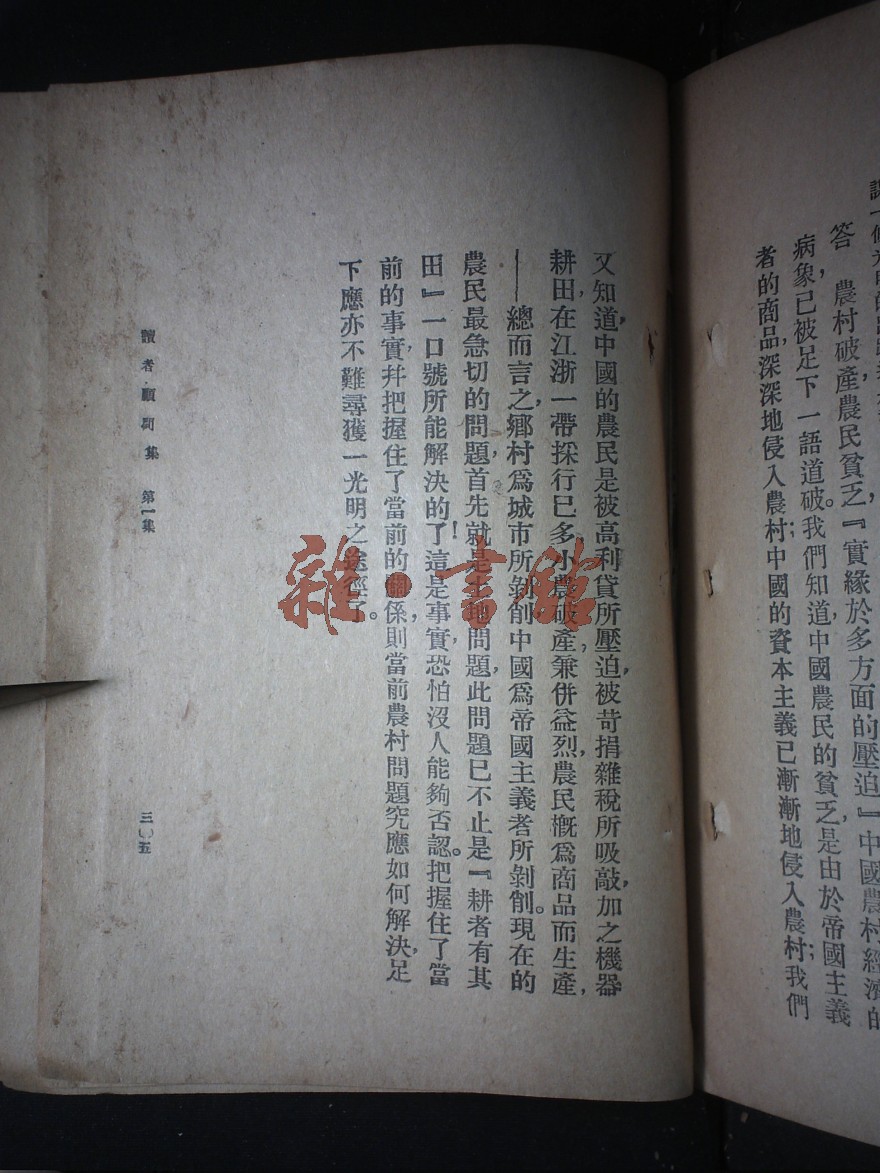 答　農村破產，農民貧乏『實緣於多方面的壓迫』中國農村經濟的
病象已被足下一語道破。我們知道中國農民的貧乏是由於帝國主義
者的商品，深深地侵入農村；中國的資本主義已漸漸地侵入農村；我們
又知道，中國的農民是被高利貸所壓迫，被苛捐雜稅所吸敲，加之機器
耕田，在江浙一帶採行已多，小農破產，兼併益烈，農民概爲商品而生產，
——總而言之，鄉村爲城市所剝削，中國爲帝國主義者所剝削。現在的
農民最急切的問題，首先就是土地問題，此問題已不止是『耕者有其
田』一口號所能解決的了！這是事實，恐怕沒人能夠否認。把握住了當
前的事實，幷把握住了當前的關係，則當前農村問題究應如何解決，足
下應亦不難尋獲一光明之途徑了。
讀者顧問集　第一集
三〇五
雜·書館